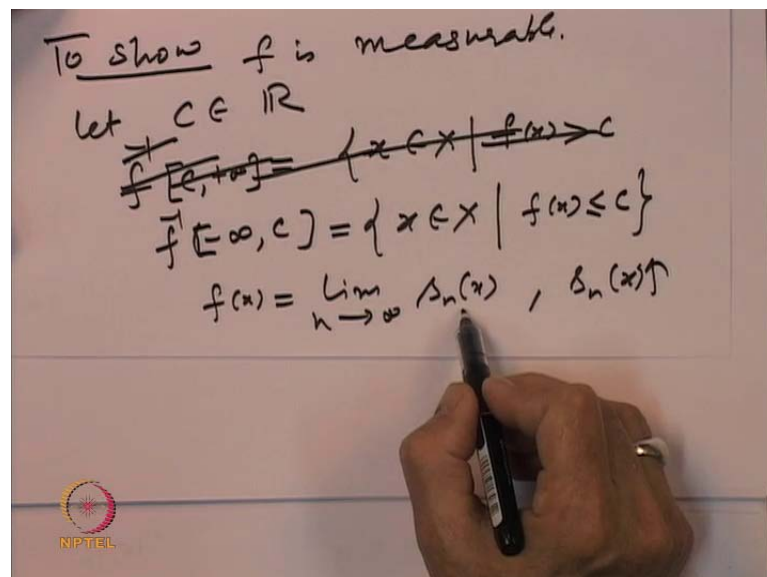 To show f is measurable.
Let C ∈ ℝ
f⁻¹[c, +∞] = { x ∈ X | f(x) > c
f⁻¹[-∞, c] = { x ∈ X | f(x) ≤ c }
f(x) = lim n→∞ sn(x) , sn(x)↑
NPTEL